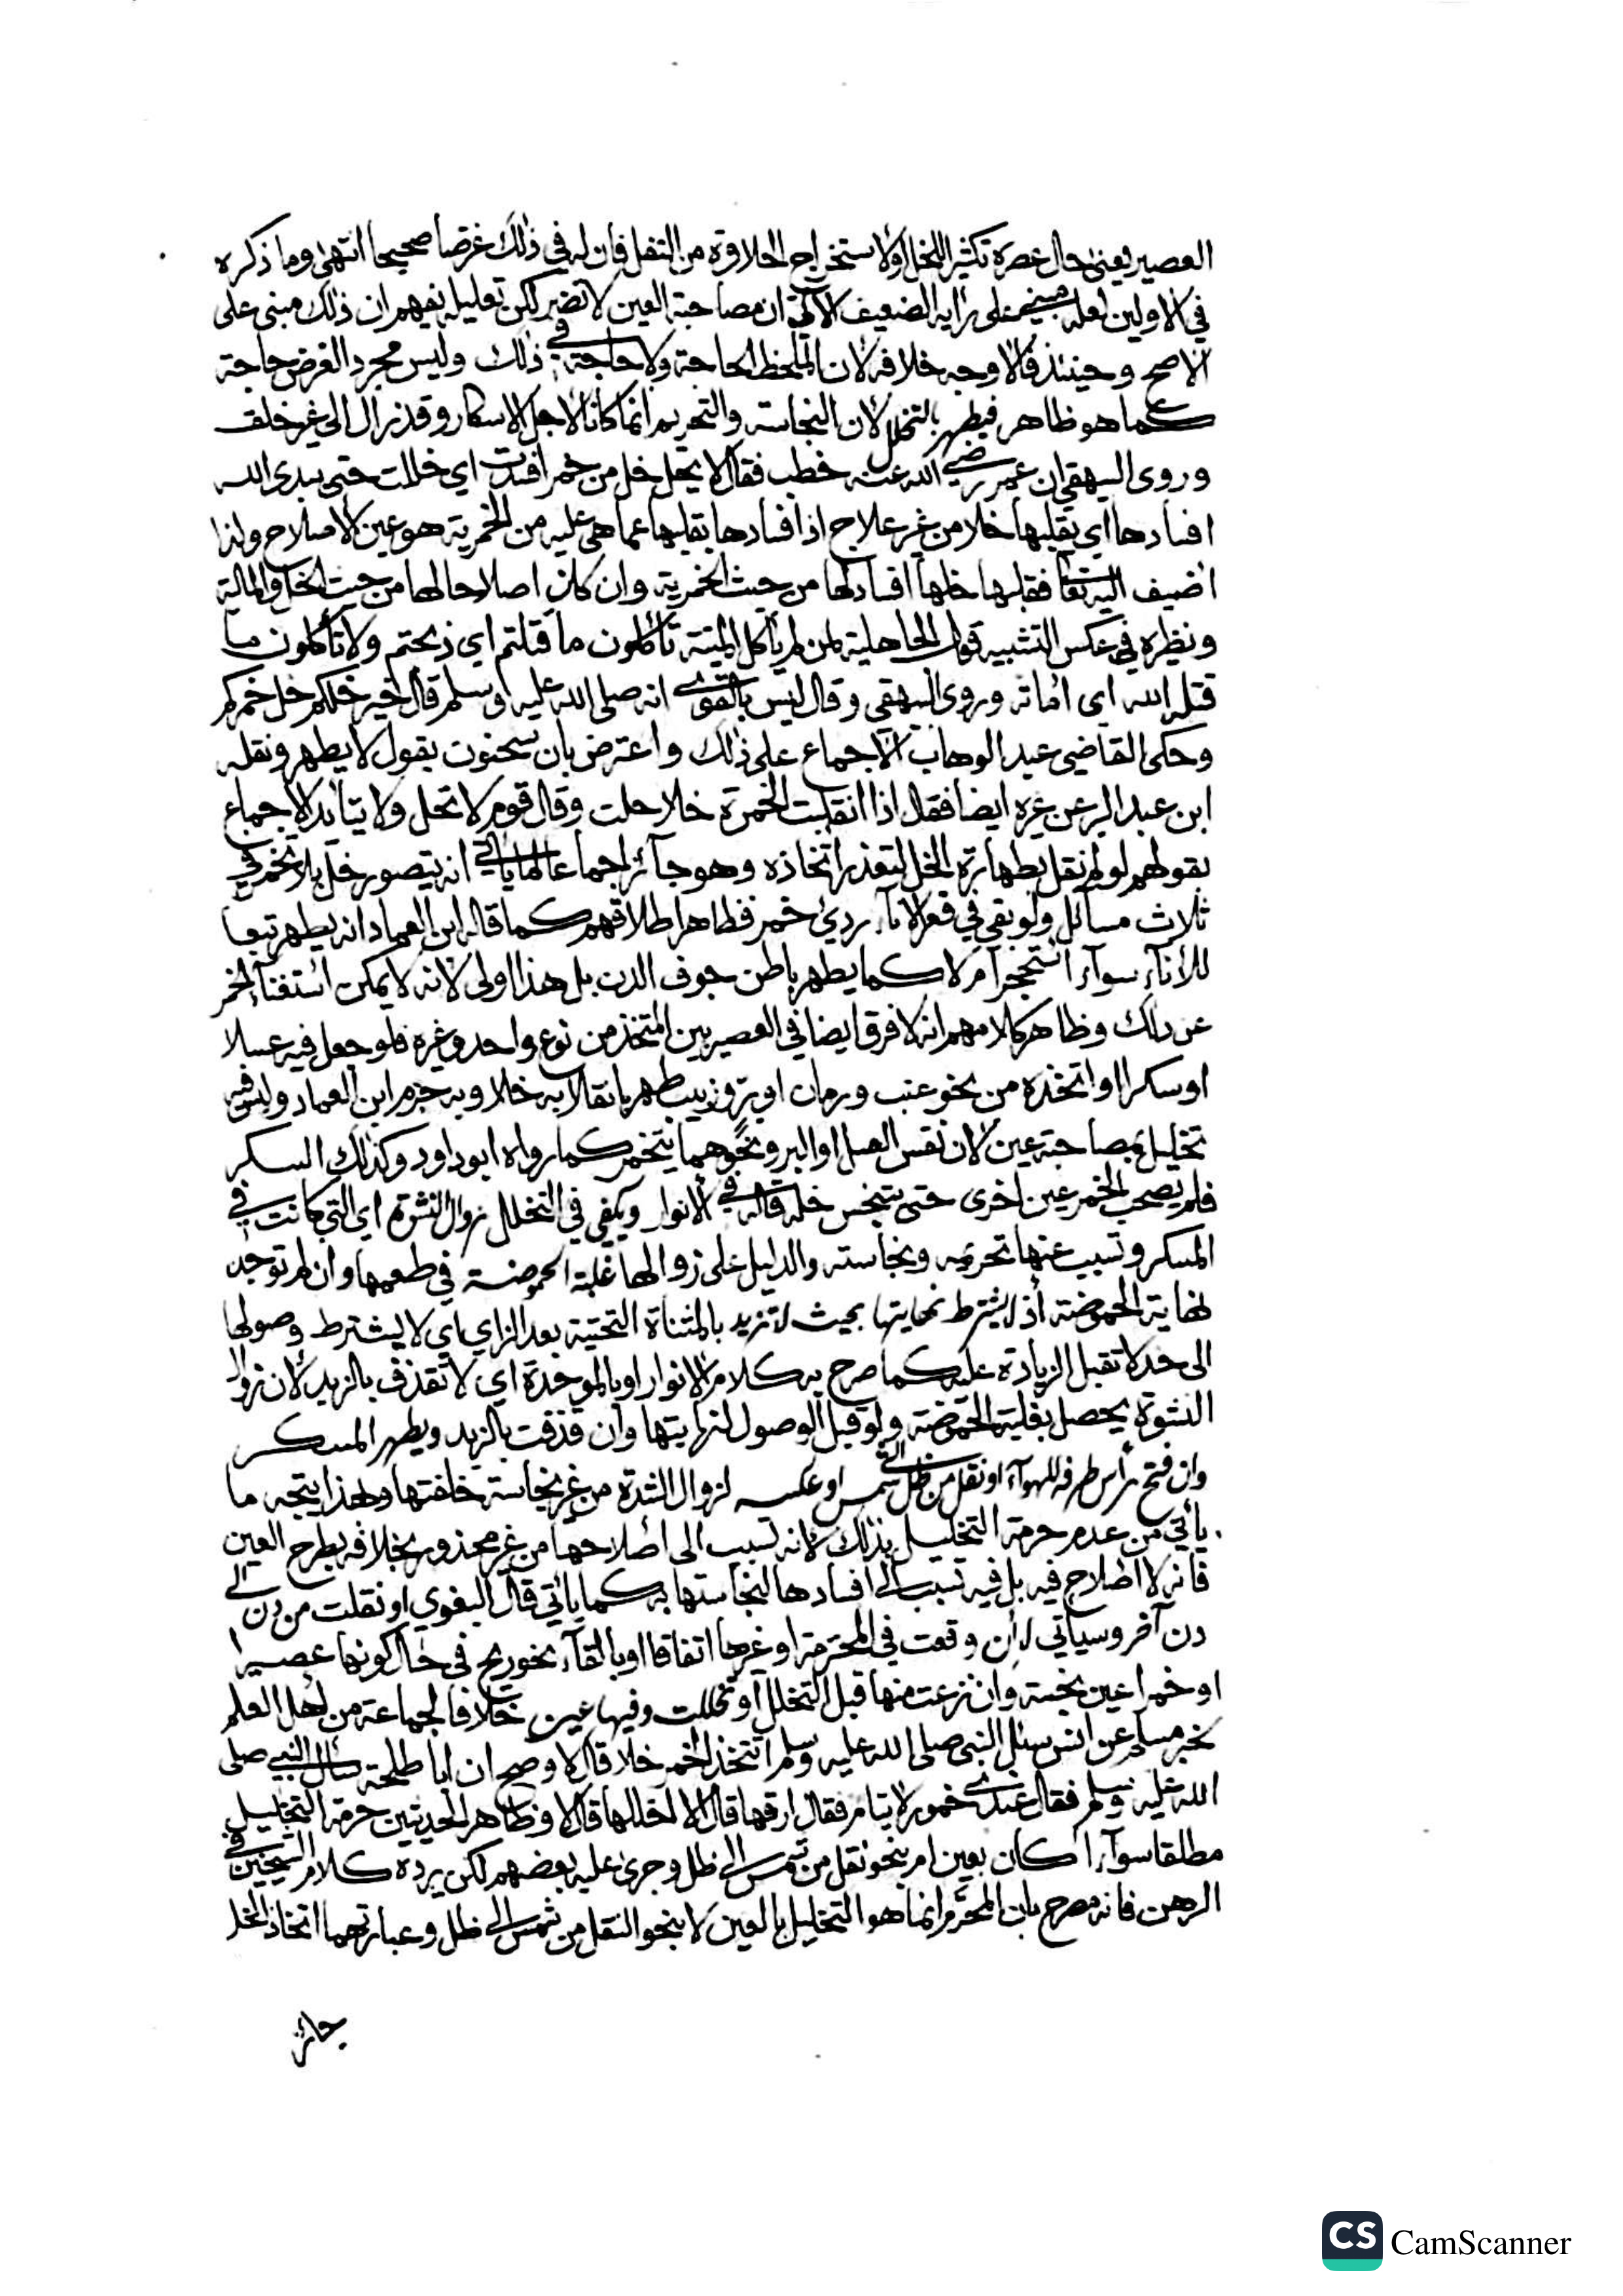 العصير يعنى حال عصره تكثير الخل اولاستخراج الحلاوة من الثفل فان له في ذلك غرضا صحيحا انتهى وما ذكره
في الاولين لعله مبني على رايه الضعيف الآتي ان مصاحبة العين لا تضر لكن تعليله يفهم ان ذلك مبنى على
الاصح وحينئذ فالاوجه خلافه لان الملحظ الحاجة ولا حاجة في ذلك وليس مجرد الغرض حاجة
كما هو ظاهر فيطهر بالتخلل لان النجاسة والتحريم انما كانا لاجل الاسكار وقد زال الى غير خلف
وروى البيهقي ان عمر رضي الله عنه خطب فقال لا يحل خل من خمر افسدت اي خللت حتى يبدى الله
افسادها اي يقلبها خلا من غير علاج اذ افسادها بقلبها عما هي عليه من الخمرية هو عين الاصلاح ولذا
اضيف اليه تعا فقلبها خلها افساد لها من حيث الخمرية وان كان اصلاحا لها من حيث الخل والمالية
ونظيره في عكس التشبيه قول الجاهلية لمن لم ياكل الميتة تأكلون ما قتلتم اي ذبحتم ولا تأكلون ما
قتله الله اى اماته وروى البيهقي وقال ليس بالقوي انه صلى الله عليه وسلم قال خير خلكم خل خمركم
وحكى القاضي عبد الوهاب الاجماع على ذلك واعترض بان سحنون يقول لا يطهر ونقله
ابن عبد البر عن غيره ايضا فقال اذا انقلبت الخمرة خلا حلت وقال قوم لا تحل ولا يتأيد الاجماع
بقولهم لو لم نقل بطهارة الخل لتعذر اتخاذه وهو جآئز اجماعا لما ياتي انه يتصور خل بلا تخمر في
ثلاث مسائل ولو بقي في قعر الاناء ردئ خمر فظاهر اطلاقهم كما قاله ابن العماد انه يطهر تبعا
للاناء سوآء استحجر ام لا كما يطهر باطن جوف الدن بل هذا اولى لانه لا يمكن استغنآء الخمر
عن ذلك وظاهر كلامهم انه لا فرق ايضا في العصير بين المتخذ من نوع واحد وغيره فلو جعل فيه عسلا
او سكرا او اتخذه من نحو عنب ورمان او بر وزبيب طهر بانقلابه خلا وبه جزم ابن العماد وليس فيه
تخليل بمصاحبة عين لان نفس العسل او البر ونحوهما يتخمر كما رواه ابو داود وكذلك السكر
فلم يصحب الخمر عين اخرى حتى يتنجس خله قاله في الانوار ويكفي في التخلل زوال النشوة اي التي كانت في
المسكر وتسبب عنها تحريمه ونجاسته والدليل على زوالها غلبة الحموضة في طعمها وان لم توجد
نهاية الحموضة اذ لا يشترط نهايتها بحيث لا تزيد بالمثناة التحتية بعد الزاي اي لا يشترط وصولها
الى حد لا تقبل الزيادة عليه كما صرح به كلام الانوار او بالموحدة اي لا تقذف بالزبد لان زوال
النشوة يحصل بغلبة الحموضة ولو قبل الوصول لنهايتها وان قذفت بالزبد ويطهر المسكر
وان فتح رأس ظرفه للهوآء او نقل من ظل الى شمس او عكسه لزوال الشدة من غير نجاسة خلفتها ولهذا يتجه ما
يأتي من عدم حرمة التخليل بذلك لانه تسبب الى اصلاحها من غير محذور بخلافه بطرح العين
فانه لا اصلاح فيه بل فيه تسبب الى افسادها لنجاستها به كما ياتي قال البغوي او نقلت من دن الى
دن آخر وسياتي لا ان وقعت في المحترمة او غيرها اتفاقا او بالقآء نحو ريح في حال كونها عصيرا
او خمرا عين نجسة وان نزعت منها قبل التخلل او تخللت وفيها عين خلافا لجماعة من اهل العلم
لخبر مسلم عن انس سئل النبي صلى الله عليه وسلم اتتخذ الخمر خلا قال لا وصح ان ابا طلحة سأل النبي صلى
الله عليه وسلم فقال عندي خمور لايتام فقال ارقها قال الا اخللها قال لا وظاهر الحديثين حرمة التخليل
مطلقا سوآء اكان بعين ام بنحو نقل من شمس الى ظل وجرى عليه بعضهم لكن يرده كلام الشيخين في
الرهن فانه مصرح بان المحرم انما هو التخليل بالعين لا بنحو النقل من شمس الى ظل وعبارتهما اتخاذ الخل
جائز
CS CamScanner